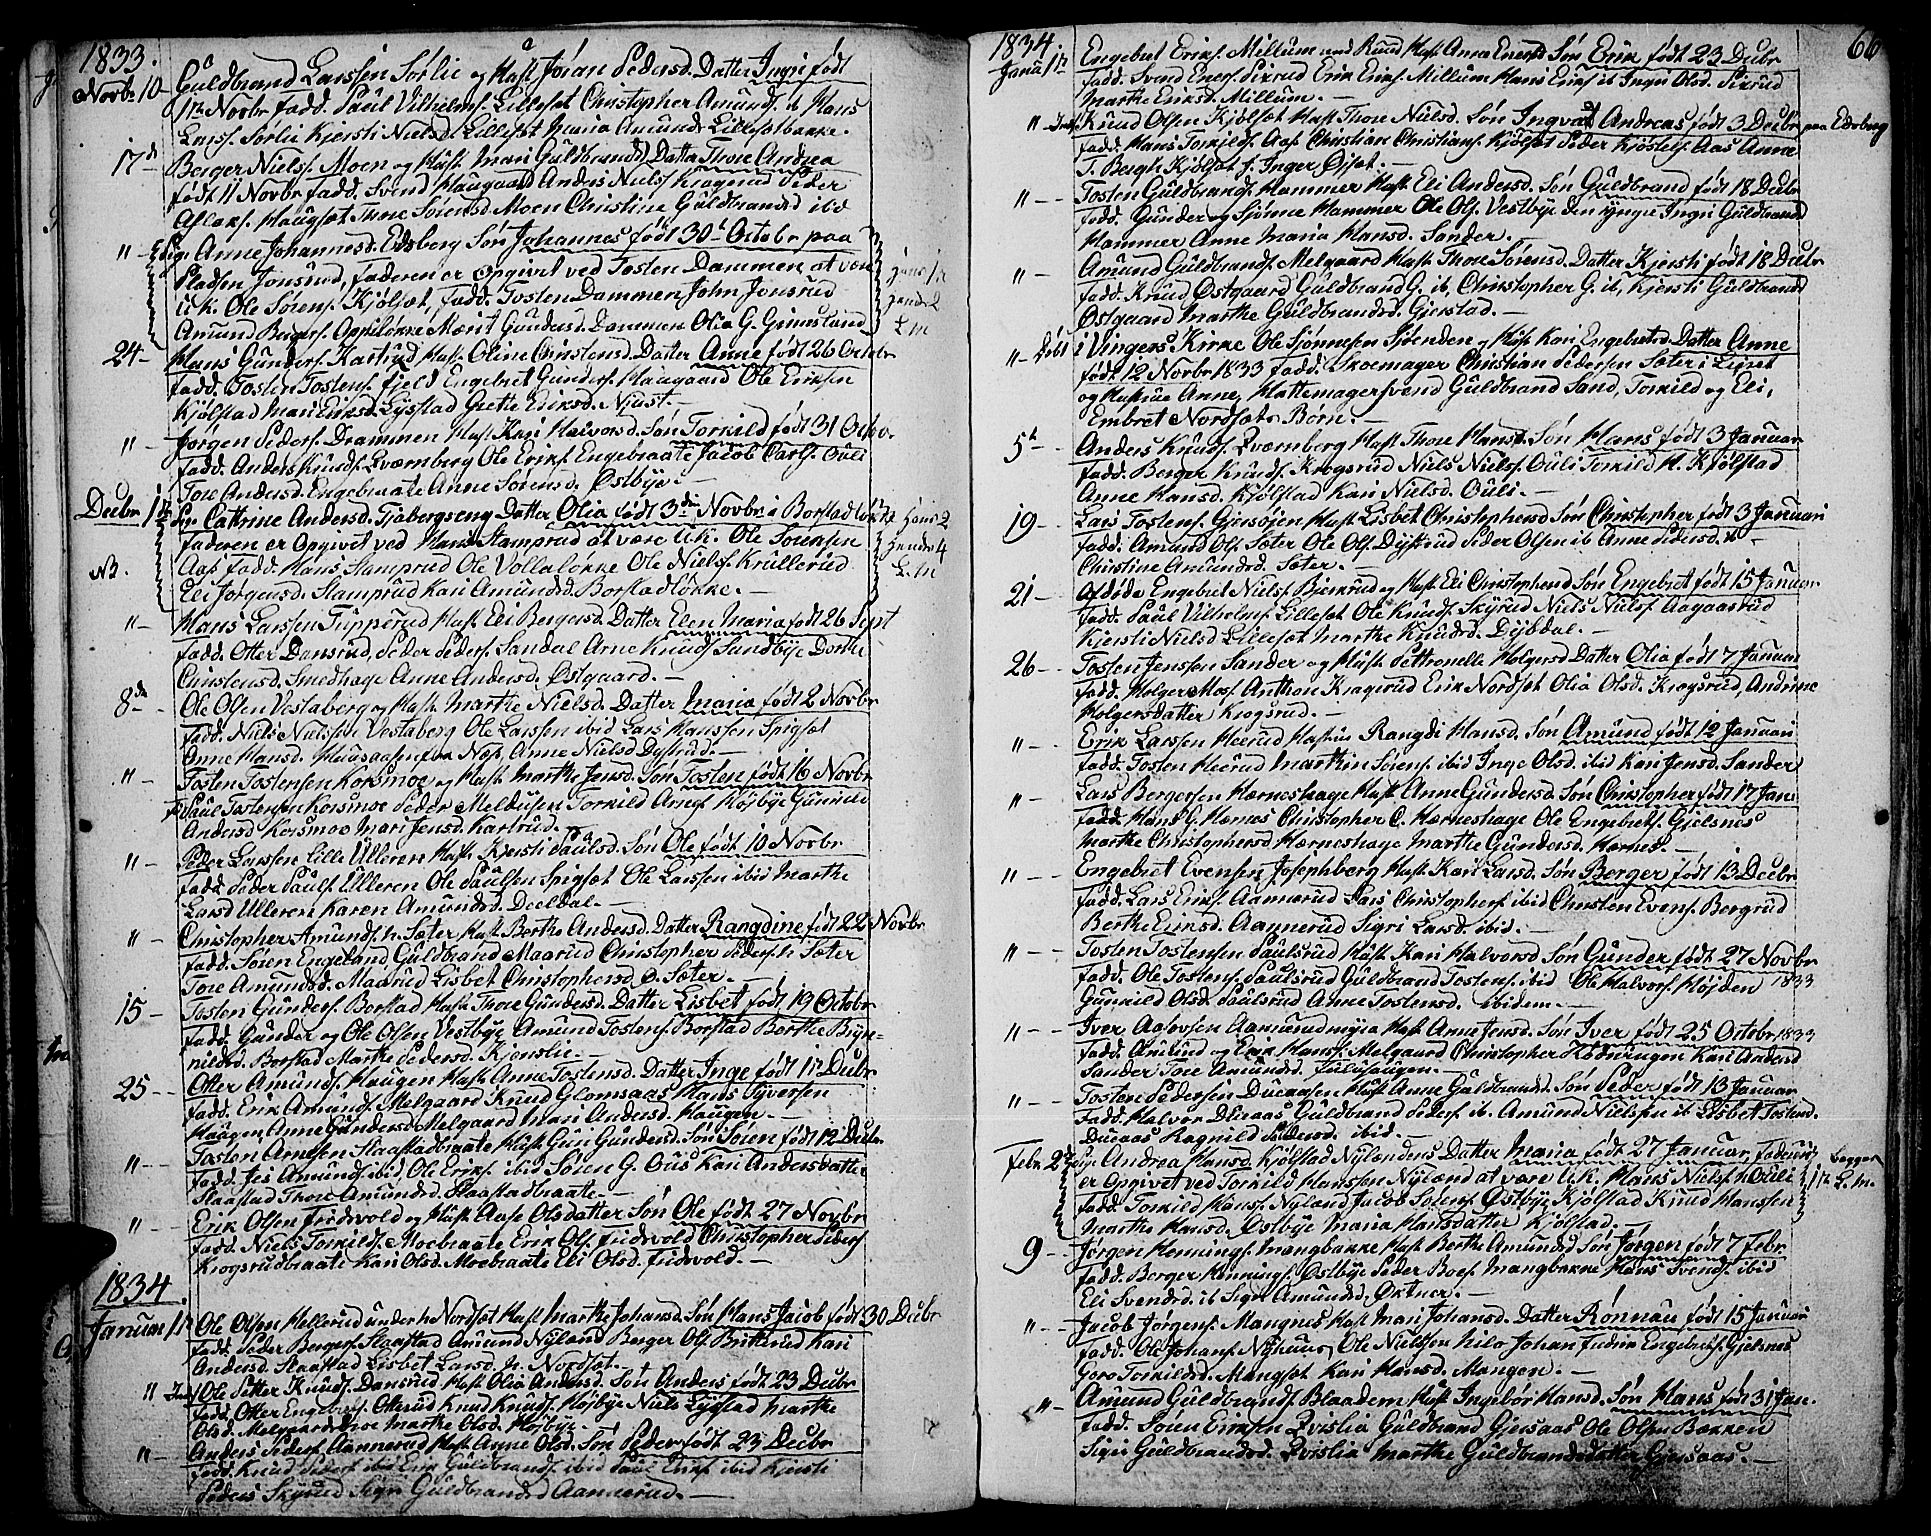 1833.
Novbr 10 Guldbrand Larssen Sørlie og Hust Jøran Pedersd. Datter Ingri født
1ste Novbr fadd. Paul Vilhelms. Lillesæt Christopher Amunds. ib Hans
Larss. Sørlie Kjersti Nielsd Lillesæt Maria Amundsd Lillesætbakke.
17d - Berger Niels. Moen og Hust. Mari Guldbrandsd Datter Thore Andrea
født 11 Novbr fadd. Svend Haugaard Anders Niels Krogsrud Peder
Aslaks. Haugsæt Thore Sørensd Moen Christine Guldbrandsd ibd
" - Pige Anne Johannesd. Edsberg Søn Johannes født 30d Octobr paa
Pladsen Jonsrud, faderen er opgivet ved Tosten Dammen at være
U.K. Ole Sørens. Kjølsæt, fadd. Tosten Dammen, John Jonsrud
Amund Bergers. Opsetløkke Marit Gundersd. Dammen Olia G. Grimsland
24 - Hans Gunders. Kartrud Hust Oline Christensd. Datter Anne født 26 Octobr
fadd. Tosten Tostens. Fjeld Engebret Gunders. Haugaard Ole Eriksen
Kjølstad Mari Eriksd. Lystad Grethe Eriksd. Njust. -
" - Jørgen Peders. Drammen Hust Kari Halvorsd. Søn Torkild født 31 Octov.
fadd. Anders Knuds. Qværnberg Ole Eriks. Engebraate Jacob Carls. Ouli
Tore Andersd. Engebraate Anne Sørensd. Østbye. -
Decbr 1ste Pige Cathrine Andersd. Tjabergseng Datter Olia født 3die Novbr i Borstadløkke
faderen er opgivet ved Hans Stamprud at være U.K. Ole Sørensen
NB. Aas fadd. Hans Stamprud Ole Volleløkke Ole Niels. Krullerud
Eli Jørgensd. Stamprud Kari Amundsd. Borstadløkke. -
" - Hans Larssen Tupperud Hust Eli Bergersd. Datter Elen Maria født 26 Sept
fadd. Otter Dansrud, Peder Peders. Sandal Arne Knuds Sundbye Dorthe
Christensd. Smedhage Anne Andersd. Østgaard. -
8de - Ole Olsen Vestaberg og Hust Marthe Nielsd. Datter Maria født 2 Novbr
fadd. Niels Nielsen Vestaberg Ole Larssen ibid Lars Hanssen Spigsæt
Anne Hansd. Huusaasen fra Næs, Anne Nielsd Dystrud. -
" - Tosten Tostensen Korsmoe og Hust Marthe Jensd. Søn Tosten født 16 Novbr
Paul Tostensen Korsmoe Peder Meldusen Torkild Arnes Højbye Gunnild
Andersd Korsmoe Mari Jensd. Kartrud.
" - Peder Larssen Lille Ulleren Hust Kjersti Paulsd. Søn Ole født 10 Novbr
fadd. Peder Pauls. Ulleren Ole Paulsen Spigsæt Ole Larssen ibid Marthe
Larsd Ulleren Karen Amundsd. Deeldal. -
" - Christopher Amunds. n. Sæter Hust Berthe Andersd. Datter Rangdine født 22 Novbr
fadd. Søren Engeland Guldbrand Maarud Christopher Peders. n. Sæter
Tore Amundsd. Maarud Lisbet Christophersd ø. Sæter. -
15 - Tosten Gunders. Borstad Hust Thore Gundersd. Datter Lisbet født 19 Octobr
fadd. Gunder og Ole Olsen Vestbye Amund Tostens. Borstad Berthe Brynnildsd.
Borstad Marthe Pedersd. Kjenslie. -
25 - - Otter Amunds. Haugen Hust Anne Tostensd. Datter Inge født 1ste Decbr
fadd. Erik Amunds. Melgaard Knud Glomsaas Hans Syversen
Haugen, Anne Gundersd Melgaard Mari Andersd. Haugen. -
" - - Tosten Arnesen Slaastadbraate Hust Guri Gundersd. Søn Søren født 12 Decbr
fadd. Jes Amunds. ibid, Ole Eriks. ibid Søren G. Ous Kari Andersdatter
Slaastad Thore Amundsd Slaastadbraate. -
" - - Erik Olsen Fridvold og Hust Aase Olsdatter Søn Ole født 27 Novbr
fadd. Niels Torkilds. Moebraate Erik Ols. Fridvold Christopher Peders
Krogsrudbraate Kari Olsd. Moebraate Eli Olsd. Fridvold. -
1834.
Januar 1ste Ole Olsen Hellerud under n. Nordsæt Hust Marthe Johansd. Søn Hans Jacob født 30 Decbr
fadd. Peder Bergers. Slaastad Amund Nyland Berger Ols. Britterud Kari
Andersd. Slaastad Lisbet Larsd. n. Nordsæt. -
" Ole Petter Knuds. Dansrud Hust Olia Andersd. Søn Anders født 23 Decbr
fadd. Otter Engebrets. Otterud Knud Knuds. Højbye Niels Lystad Marthe
Olsd. Melgaardsmoe Marthe Olsd. Højbye. -
" - Anders Peders. Aannerud Hust Anne Olsd. Søn Peder født 23 Decbr
fadd. Knud Peders. ibid Erik Guldbrands. ibid Paul Eriks. ibid Kjersti
Peders Skyrud Sigri Guldbrandsd Aannerud. -
1834 66
Janu 1ste Engebret Eriks. Millum und Ruud Hust Anne Enersd Søn Erik født 23 Decbr
fadd. Svend Eners. Sixrud Erik Eriks. Millum Hans Eriks. ib Ingri Olsd. Sixrud
Marthe Eriksd. Millum. -
" Knud Olsen Kjølsæt Hust Thore Nielsd. Søn Ingvald Andreas født 3 Decbr paa Edsberg
fadd. Hans Torkilds. Aas Christian Christians. Kjølsæt Peder Kjøstels. Aas Anne
T. Bergh Kjølsæt J. Inger Øisæt. -
" - - Tosten Guldbrands. Hammer Hust Eli Andersd. Søn Guldbrand født 18 Decbr
fadd. Gunder og Sjønne Hammer Ole Ols. Vestbye den yngre Ingri Guldbrandsd
Hammer Anne Maria Hansd. Sander.
" - Amund Guldbrands. Melgaard Hust Thore Sørensd. Datter Kjersti født 18 Decbr
fadd. Knud Østgaard Guldbrand G. ib, Christopher G. ib, Kjersti Guldbrandsd
Østgaard Marthe Guldbrandsd. Gjerstad. -
" - døbt i Vingers Kirke Ole Sjønnesen Tjernden og Hust Kari Engebretsd. Datter Anne
født 12 Novbr 1833 fadd. Skoemager Christian Pedersen Sæter i Leiret
og Hustrue Anne, Hattemagersvend Guldbrand Sand, Torkild og Eli,
Embret Nordsæts Børn. -
5te - Anders Knuds. Qværnberg Hust Thore Hansd. Søn Hans født 3 Januar
fadd. Berger Knuds. Krogsrud Niels Niels. Ouli Torkild H. Kjølstad
Anne Hansd. Kjølstad Kari Nielsd. Ouli. -
19 - Lars Tostens. Gjersøjen Hust Lisbet Christophersd Søn Christopher født 3 Januari
fadd. Amund Ols. Sæter Ole Ols. Dystrud Peder Olsen ib Anne Pedersd. ib -
Christine Amundsd. Sæter. -
21 - Afdøde Engebret Niels. Bjerkrud og Hust Eli Christophersd Søn Engebret født 15 Januar
fadd. Paul Vilhelms. Lillesæt Ole Knuds. Skyrud Niels Niels. Aagaasrud
Kjersti Nielsd Lillesæt Marthe Knudsd. Dybdal. -
26 - Tosten Jenssen Sander og Hust Pettronelle Holgersd Datter Olia født 7 Januar
fadd. Holger Mos. Anthon Kragerud Erik Nordsæt Olia Olsd. Krogsrud, Andrine
Holgersdatter Krogsrud. -
" - Erik Larssen Heerud Hustrue Rangdi Hansd. Søn Amund født 12 Januari
fadd. Tosten Heerud Marthin Sørens. ibid Inge Olsd. ibid Kari Jensd. Sander
" - Lars Bergersen Hærneshage Hust Anne Gundersd. Søn Christopher født 17 Jani
fadd. Hans G. Hærnes Christopher C. Hærneshage Ole Engebrets. Gjelsnes
Marthe Christophersd Hærneshage Marthe Gundersd. Hærnes. -
" - - Engebret Evensen Josephberg Hust Kari Larsd. Søn Berger født 13 Decbr
fadd. Lars Eriks. Aannerud Lars Christophers. ibid Christen Evens. Bergrud
Berthe Eriksd. Aannerud Sigri Larsd. ibid. -
" - - Tosten Tostensen Paulsrud Hust Kari Halvorsd Søn Gunder født 27 Novbr
fadd. Ole Tostens. Paulsrud Guldbrand Tostens. ibid Ole Halvors. Højden 1833
Gunnild Olsd. Paulsrud Anne Tostensd. ibidem. -
" - - Iver Aslovsen Aamundmyra Hust Anne Jensd. Søn Iver født 25 Octobr 1833
fadd. Amund og Erik Hans. Melgaard Christopher Kødningen Kari Andersd
Sander Tore Amundsd. Julihaugen. -
" - - Tosten Pedersen Dueaasen Hust Anne Guldbrandsd. Søn Peder født 13 Januar
fadd. Halvor Dueaas Guldbrand Peders. ib. Amund Nielsen ib Lisbet Tostensd.
Dueaas Ragnild Pedersd. ibid. -
Febr 2den Pige Andrea Hansd. Kjølstad Nylændens Datter Maria født 27 Januar, faderen
er opgivet ved Torkild Hanssen Nylænd at være U.K. Hans Niels. n. Ouli
fadd. Torkild Hans. Nyland Jacob Sørens. Østbye, Kjølstad Knud Hanssen
Marthe Hansd. Østbye Maria Hansdatter Kjølstad.
9 - Jørgen Hennings. Mangbakke Hust Berthe Amundsd Søn Jørgen født 7 Febr
fadd. Berger Hennings. Østbye Peder Boes. Mangbakke Hans Svends. ibid
Eli Svendsd. ib Sigri Amundsd. Øktner. -
" - - Jacob Jørgens. Mangnes Hust Mari Johansd. Datter Rønnau født 15 Januar
fadd. Ole Johans. Nyhuus, Ole Nielssen Nilo Johan Engebrets. Gjelsnes
Goro Torkildsd. Mangsæt Kari Hansd. Mangen. -
" - Amund Guldbrands. Blaadern Hust Ingebør Hansd. Søn Hans født 31 Jan.
fadd. Søren Eriksen Qvislia Guldbrand Gjersaas Ole Olsen Bækken
Sigri Guldbrandsd. Qvislia Marthe Guldbrandsdatter Gjersaas. -